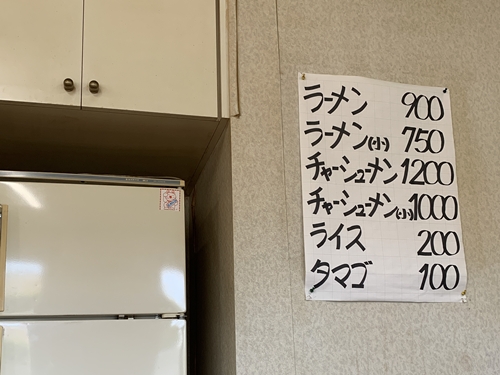 ラーメン 900
ラーメン(小) 750
チャーシューメン 1200
チャーシューメン(小) 1000
ライス 200
タマゴ 100